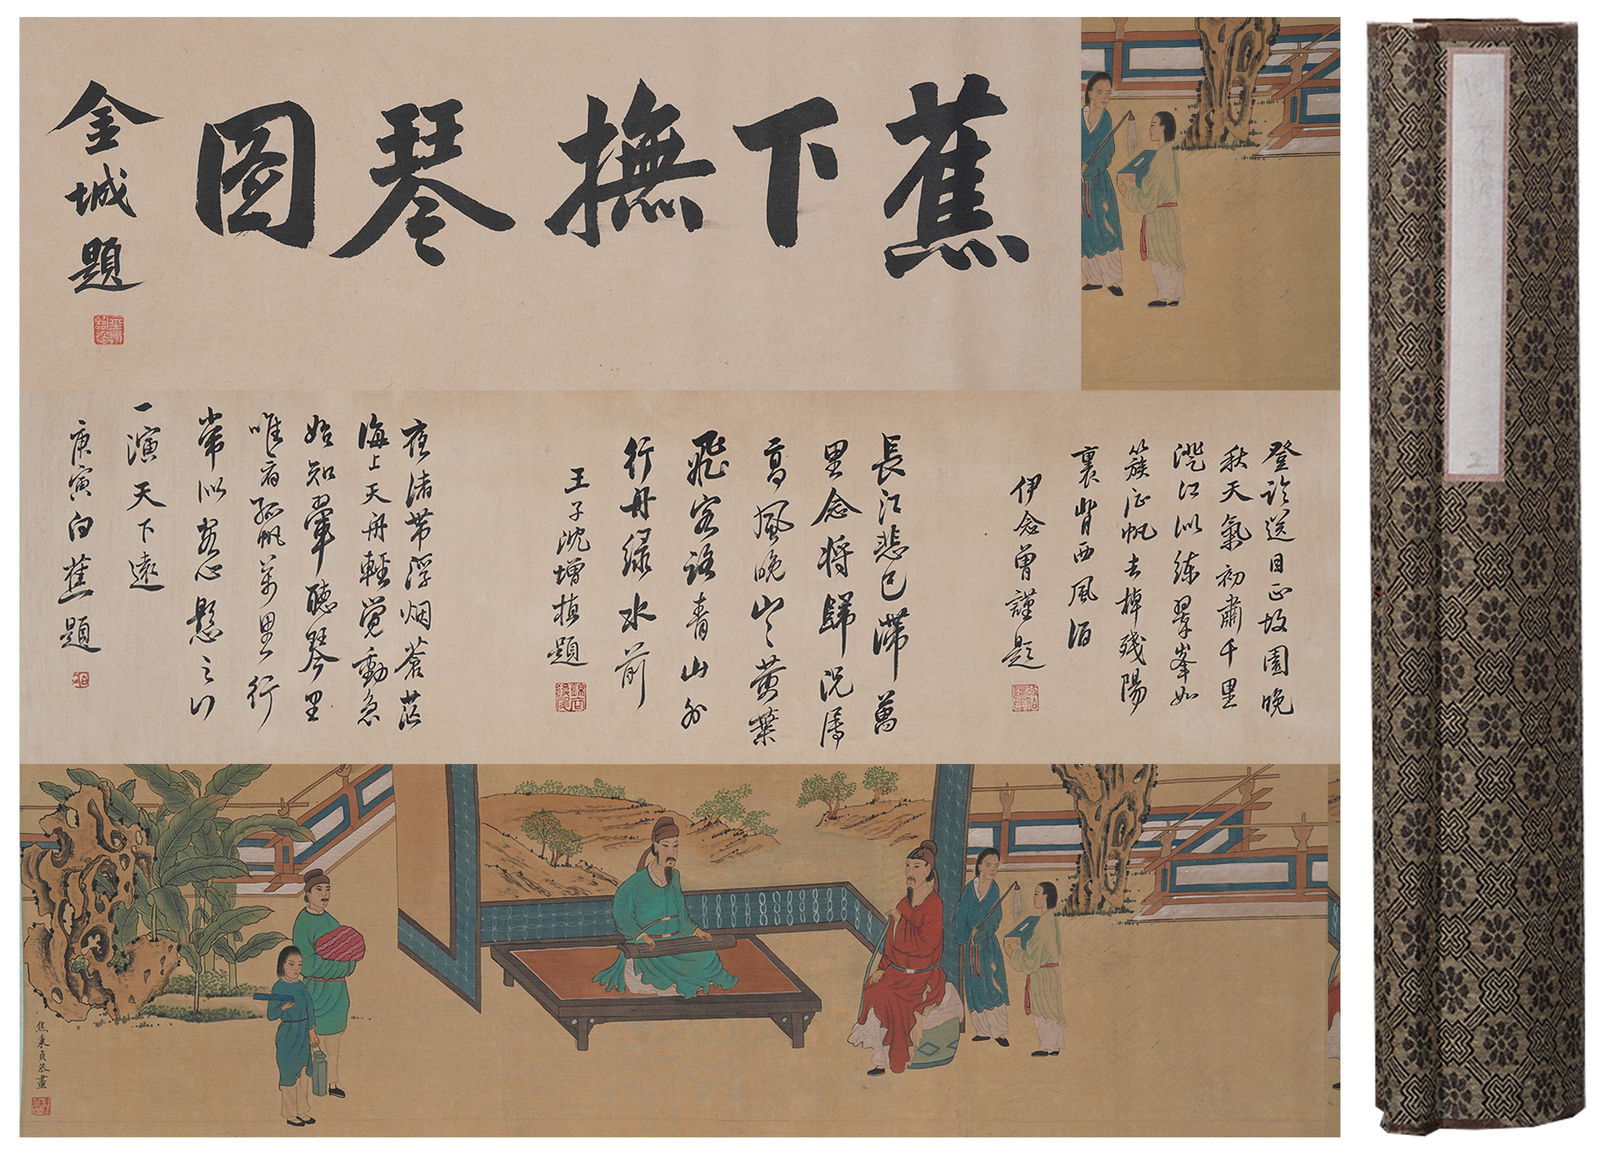 蕉下撫琴圖
金城題
登臨送目正故園晚
秋天氣初肅千里
澄江似練翠峯如
簇征帆去棹殘陽
裏背西風酒
伊念曾謹題
長江悲已滯萬
里念將歸況屬
高風晚山々黃葉
飛客路青山外
行舟綠水前
王子沈增植題
夜渚帶浮烟蒼茫
海上天舟輕覺動急
始知聽琴里
唯看孤帆萬里行
常似客心懸之
一演天下遠
庚寅白蕉題
焦秉貞恭畫